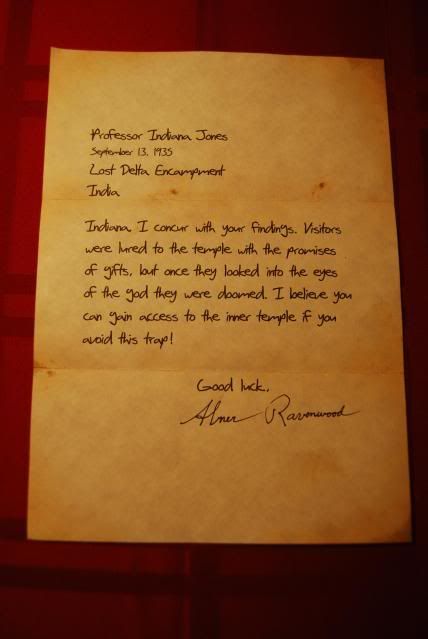 Professor Indiana Jones
September 13, 1935
Lost Delta Encampment
India
Indiana, I concur with your findings. Visitors
were lured to the temple with the promises
of gifts, but once they looked into the eyes
of the god they were doomed. I believe you
can gain access to the inner temple if you
avoid this trap!
Good luck,
Abner Ravenwood